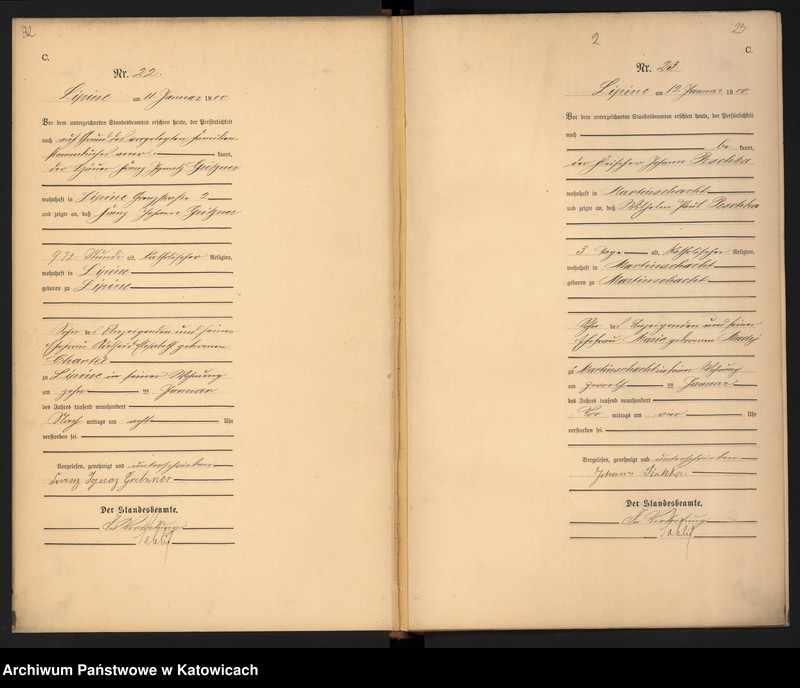 C.
Nr. 22.
Lipine am 11 Januar 1900
Vor dem unterzeichneten Standesbeamten erschien heute, der Persönlichkeit
nach auf Grund des vorgelegten Familien-
kannt,
der Häuer Franz Ignatz
wohnhaft in Lipine
und zeigte an, daß Franz Johann
Stunde alt, katholischer Religion,
wohnhaft in Lipine
geboren zu Lipine
Sohn des Anzeigenden und seiner
Ehefrau geborenen
zu Lipine in seiner Wohnung
am zehn ten Januar
des Jahres tausend neunhundert
Nach mittags um acht Uhr
verstorben sei.
Vorgelesen, genehmigt und unterschrieben
Franz Ignaz
Der Standesbeamte.
In Vertretung
23
2
C.
Nr. 23.
Lipine am 12 Januar 1900
Vor dem unterzeichneten Standesbeamten erschien heute, der Persönlichkeit
nach
be kannt,
der Johann Peschka
wohnhaft in Martinschacht
und zeigte an, daß Wilhelm Paul Peschka
3 Tage alt, katholischer Religion,
wohnhaft in Martinschacht
geboren zu Martinschacht
Sohn des Anzeigenden und seiner
Ehefrau Marie geborenen
zu Martinschacht in seiner Wohnung
am zwölf ten Januar
des Jahres tausend neunhundert
Vor mittags um vier Uhr
verstorben sei.
Vorgelesen, genehmigt und unterschrieben
Johann
Der Standesbeamte.
In Vertretung
Archiwum Państwowe w Katowicach